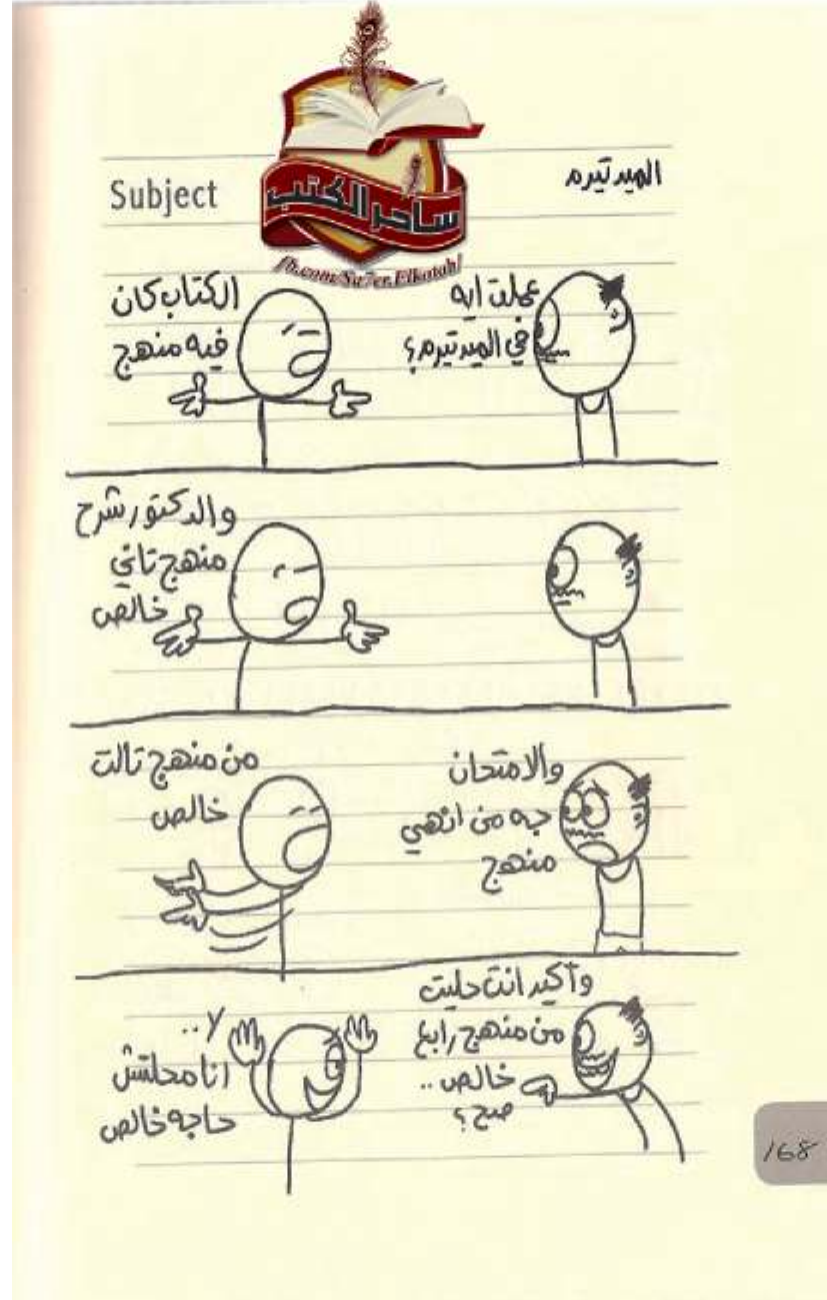 Subject
الميدتيرم
ساحر الكتب
fb.com/Sa7er.Elkotob/
عملت ايه
في الميدتيرم؟
الكتاب كان
فيه منهج
والدكتور شرح
منهج تاني
خالص
والامتحان
جه من انهي
منهج
من منهج تالت
خالص
وأكيد انت حليت
من منهج رابع
خالص..
صح؟
لا..
انا محلتش
حاجه خالص
168